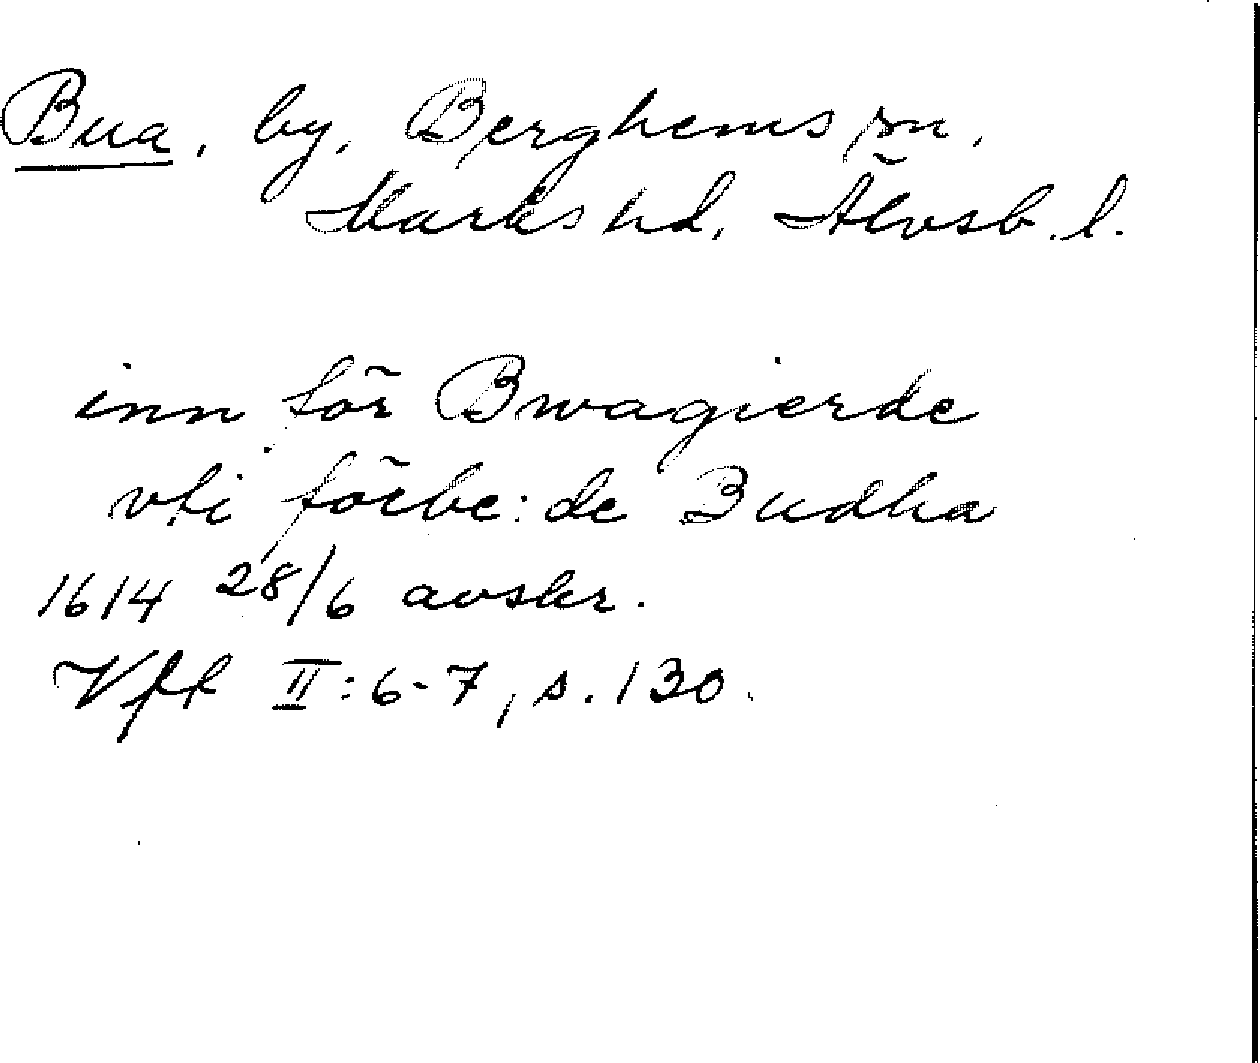 Bua, by, Berghems sn,
Marks hd, Älvsb. l.
inn för Bwagierde
vti förbe:de Budha
1614 28/6 avskr.
Vft II:6-7, s. 130.